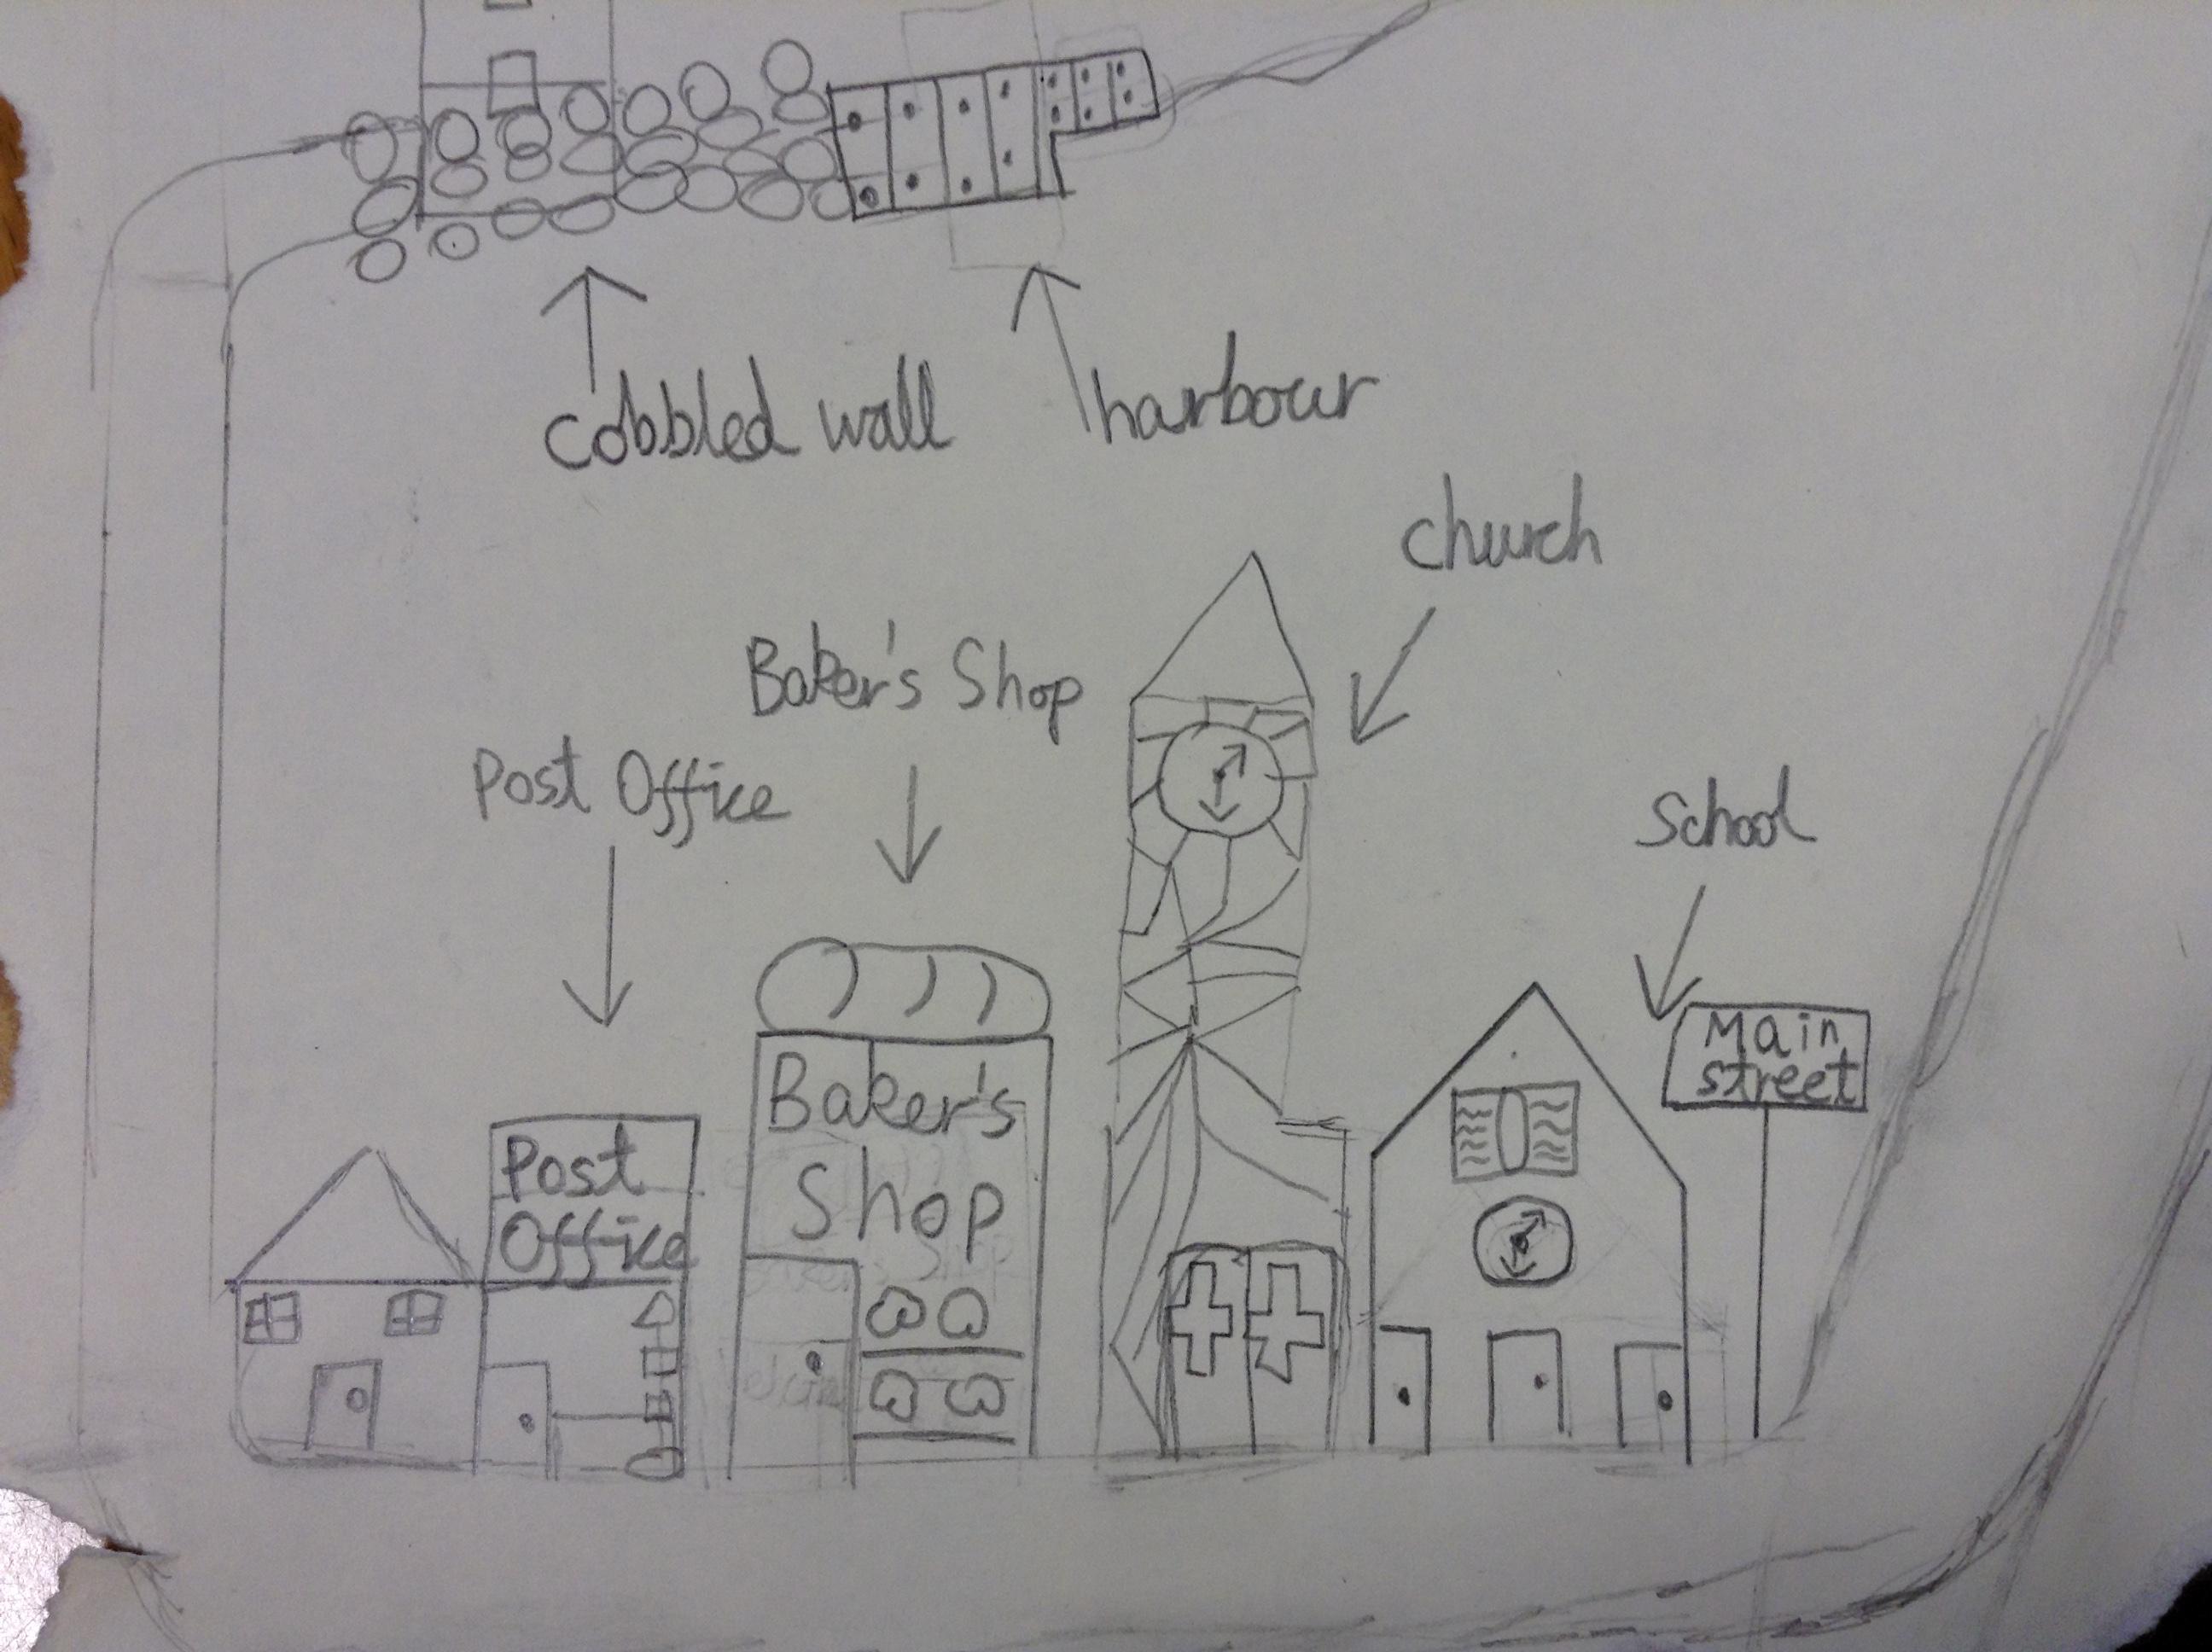 cobbled wall
harbour
church
Baker's Shop
Post Office
School
Main
street
Baker's
Shop
Post
Office